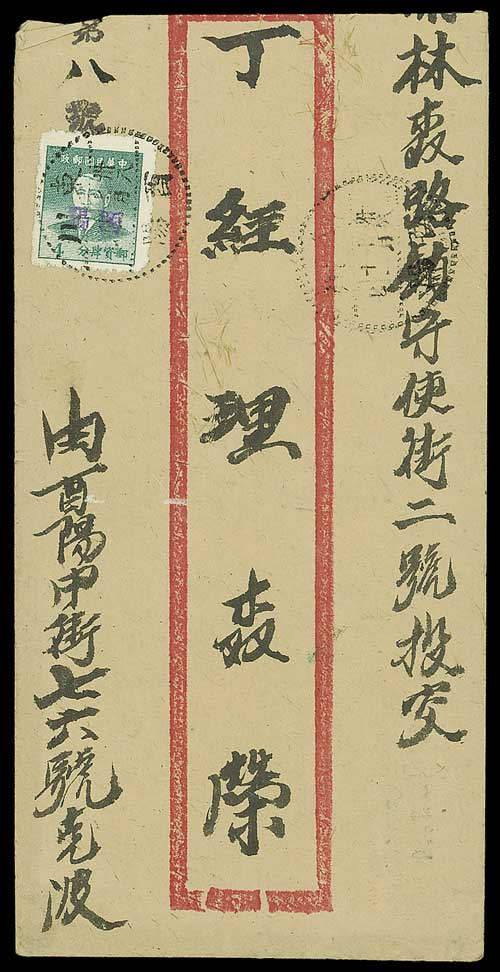 林森路鎮守使街二號投交
丁經理森榮
由酉陽中街七六號克波
第八號
中華民國郵政
郵資肆分
4